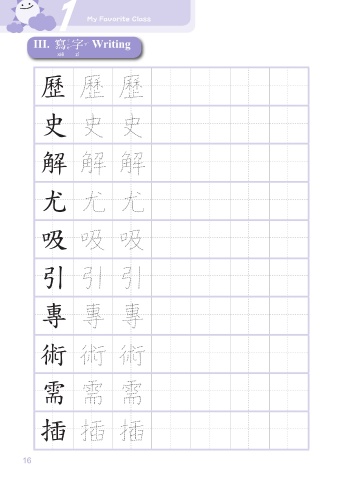 1 My Favorite Class
III. 寫字 Writing
歷 歷 歷
史 史 史
解 解 解
尤 尤 尤
吸 吸 吸
引 引 引
專 專 專
術 術 術
需 需 需
插 插 插
16